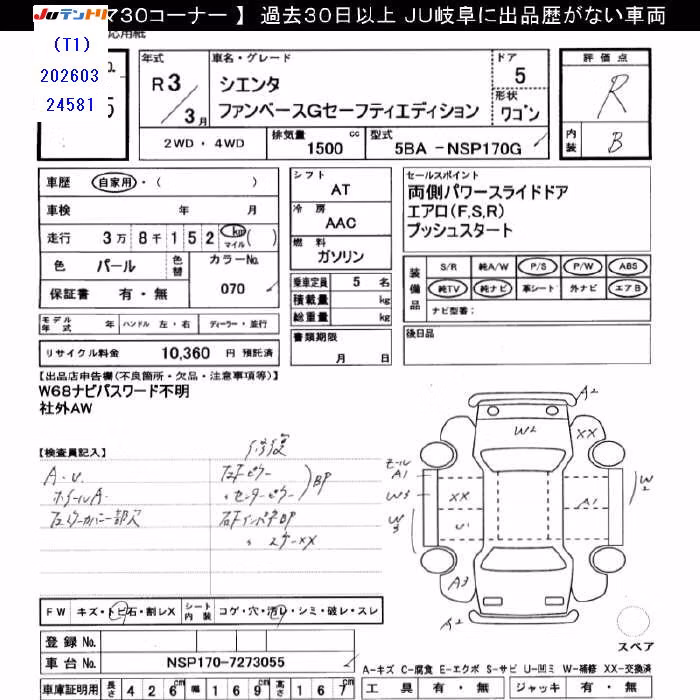 JUテントリ 730コーナー 】 過去30日以上 JU岐阜に出品歴がない車両
(T1)
202603
24581
応用紙
年式
R3/3月
車名・グレード
シエンタ
ファンベースGセーフティエディション
ドア
5
形状
ワゴン
評価点
R
内装
B
2WD・4WD
排気量 1500 cc
型式 5BA -NSP170G
車歴 自家用・( )
車検 年 月
走行 3万8千152 km マイル ( )
色 パール 色替
カラーNo. 070
保証書 有・無
モデル年式 年 ハンドル 左・右 ディーラー・並行
リサイクル料金 10,360 円 預託済
シフト AT
冷房 AAC
燃料 ガソリン
乗車定員 5 名
積載量 kg
総重量 kg
書類期限
月 日
セールスポイント
両側パワースライドドア
エアロ(F,S,R)
プッシュスタート
装備品
S/R 純A/W P/S P/W ABS
純TV 純ナビ 革シート 外ナビ エアB
ナビ型番:
後日品
【出品店申告欄(不良箇所・欠品・注意事項等)】
W68ナビパスワード不明
社外AW
【検査員記入】
修復
A・U
ホイールA
右ピラー
・センターピラー
BP
・ステーXX
A2
W2
XX
モール
A1
W3
XX
U1
W3
A1
W2
A3
A2
スペア
FW キズ・トビ石・割レX
シート内装 コゲ・穴・汚レ・シミ・破レ・スレ
登録 No.
車台 No. NSP170-7273055
車庫証明用 長さ 426cm 幅 169cm 高さ 167cm
A-キズ C-腐食 E-エクボ S-サビ U-凹ミ W-補修 XX-交換済
工具 有・無 ジャッキ 有・無